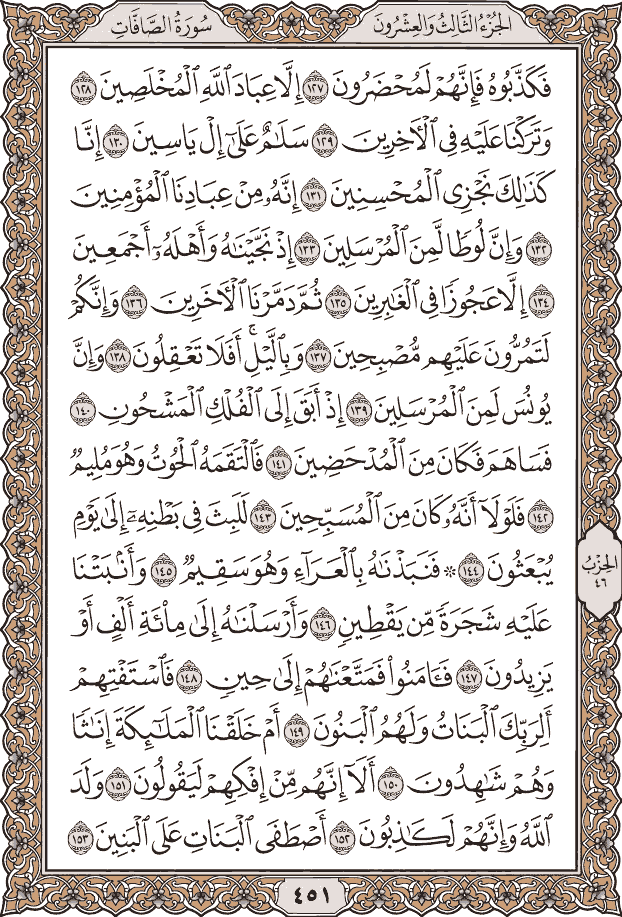 الجُزْءُ الثَّالِثُ وَالعِشْرُونَ
سُورَةُ الصَّافَّاتِ
فَكَذَّبُوهُ فَإِنَّهُمْ لَمُحْضَرُونَ ١٢٧ إِلَّا عِبَادَ ٱللَّهِ ٱلْمُخْلَصِينَ ١٢٨
وَتَرَكْنَا عَلَيْهِ فِى ٱلْأَخِرِينَ ١٢٩ سَلَـٰمٌ عَلَىٰٓ إِلْ يَاسِينَ ١٣٠ إِنَّا
كَذَٰلِكَ نَجْزِى ٱلْمُحْسِنِينَ ١٣١ إِنَّهُۥ مِنْ عِبَادِنَا ٱلْمُؤْمِنِينَ
١٣٢ وَإِنَّ لُوطًا لَّمِنَ ٱلْمُرْسَلِينَ ١٣٣ إِذْ نَجَّيْنَـٰهُ وَأَهْلَهُۥٓ أَجْمَعِينَ
١٣٤ إِلَّا عَجُوزًا فِى ٱلْغَـٰبِرِينَ ١٣٥ ثُمَّ دَمَّرْنَا ٱلْأَخَرِينَ ١٣٦ وَإِنَّكُمْ
لَتَمُرُّونَ عَلَيْهِم مُّصْبِحِينَ ١٣٧ وَبِٱلَّيْلِ ۗ أَفَلَا تَعْقِلُونَ ١٣٨ وَإِنَّ
يُونُسَ لَمِنَ ٱلْمُرْسَلِينَ ١٣٩ إِذْ أَبَقَ إِلَى ٱلْفُلْكِ ٱلْمَشْحُونِ ١٤٠
فَسَاهَمَ فَكَانَ مِنَ ٱلْمُدْحَضِينَ ١٤١ فَٱلْتَقَمَهُ ٱلْحُوتُ وَهُوَ مُلِيمٌ
١٤٢ فَلَوْلَآ أَنَّهُۥ كَانَ مِنَ ٱلْمُسَبِّحِينَ ١٤٣ لَلَبِثَ فِى بَطْنِهِۦٓ إِلَىٰ يَوْمِ
يُبْعَثُونَ ١٤٤ ۞ فَنَبَذْنَـٰهُ بِٱلْعَرَآءِ وَهُوَ سَقِيمٌ ١٤٥ وَأَنۢبَتْنَا
عَلَيْهِ شَجَرَةً مِّن يَقْطِينٍ ١٤٦ وَأَرْسَلْنَـٰهُ إِلَىٰ مِا۟ئَةِ أَلْفٍ أَوْ
يَزِيدُونَ ١٤٧ فَـَٔامَنُوا۟ فَمَتَّعْنَـٰهُمْ إِلَىٰ حِينٍ ١٤٨ فَٱسْتَفْتِهِمْ
أَلِرَبِّكَ ٱلْبَنَاتُ وَلَهُمُ ٱلْبَنُونَ ١٤٩ أَمْ خَلَقْنَا ٱلْمَلَـٰٓئِكَةَ إِنَـٰثًا
وَهُمْ شَـٰهِدُونَ ١٥٠ أَلَآ إِنَّهُم مِّنْ إِفْكِهِمْ لَيَقُولُونَ ١٥١ وَلَدَ
ٱللَّهُ وَإِنَّهُمْ لَكَـٰذِبُونَ ١٥٢ أَصْطَفَى ٱلْبَنَاتِ عَلَى ٱلْبَنِينَ ١٥٣
الحِزْبُ
٤٦
٤٥١